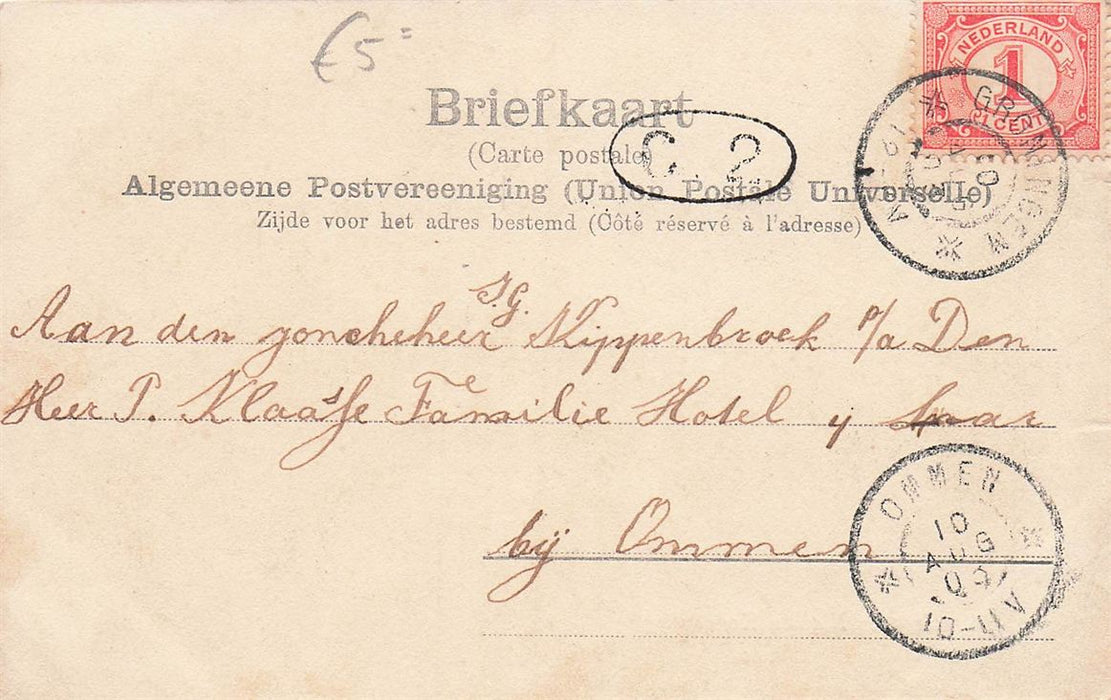 €5=
NEDERLAND
1
1 CENT
Briefkaart
(Carte postale)
C. 2
Algemeene Postvereeniging (Union Postale Universelle)
Zijde voor het adres bestemd (Côté réservé à l'adresse)
GRONINGEN
J.G.
Aan den joncheheer Kippenbroek p/a Den
Heer P. Klaasse Familie Hotel
bij Ommen
OMMEN
10
AUG
03
10-11V